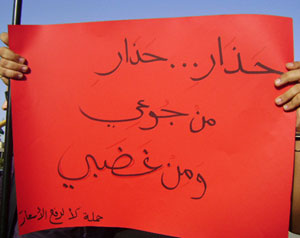 حذار...حذار
من جوعي
ومن غضبي
حملة لا لرفع الأسعار